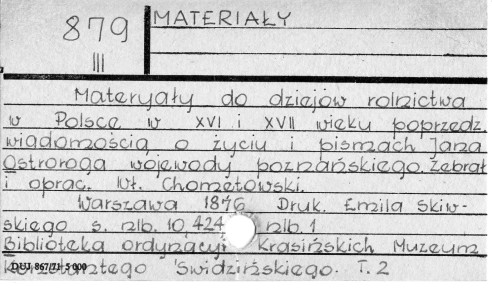 879
III
MATERIAŁY
Materyały do dziejów rolnictwa
w Polsce w XVI i XVII wieku poprzedz.
wiadomością o życiu i pismach Jana
Ostroroga wojewody poznańskiego. Zebrał
i oprac. Wł. Chometowski.
Warszawa 1876 Druk. Emila Skiw-
skiego s. nlb. 10, 424 nlb. 1
Biblioteka ordynacyi Krasińskich Muzeum
Konstantego Świdzińskiego. T. 2
DUJ 867/71 5 000